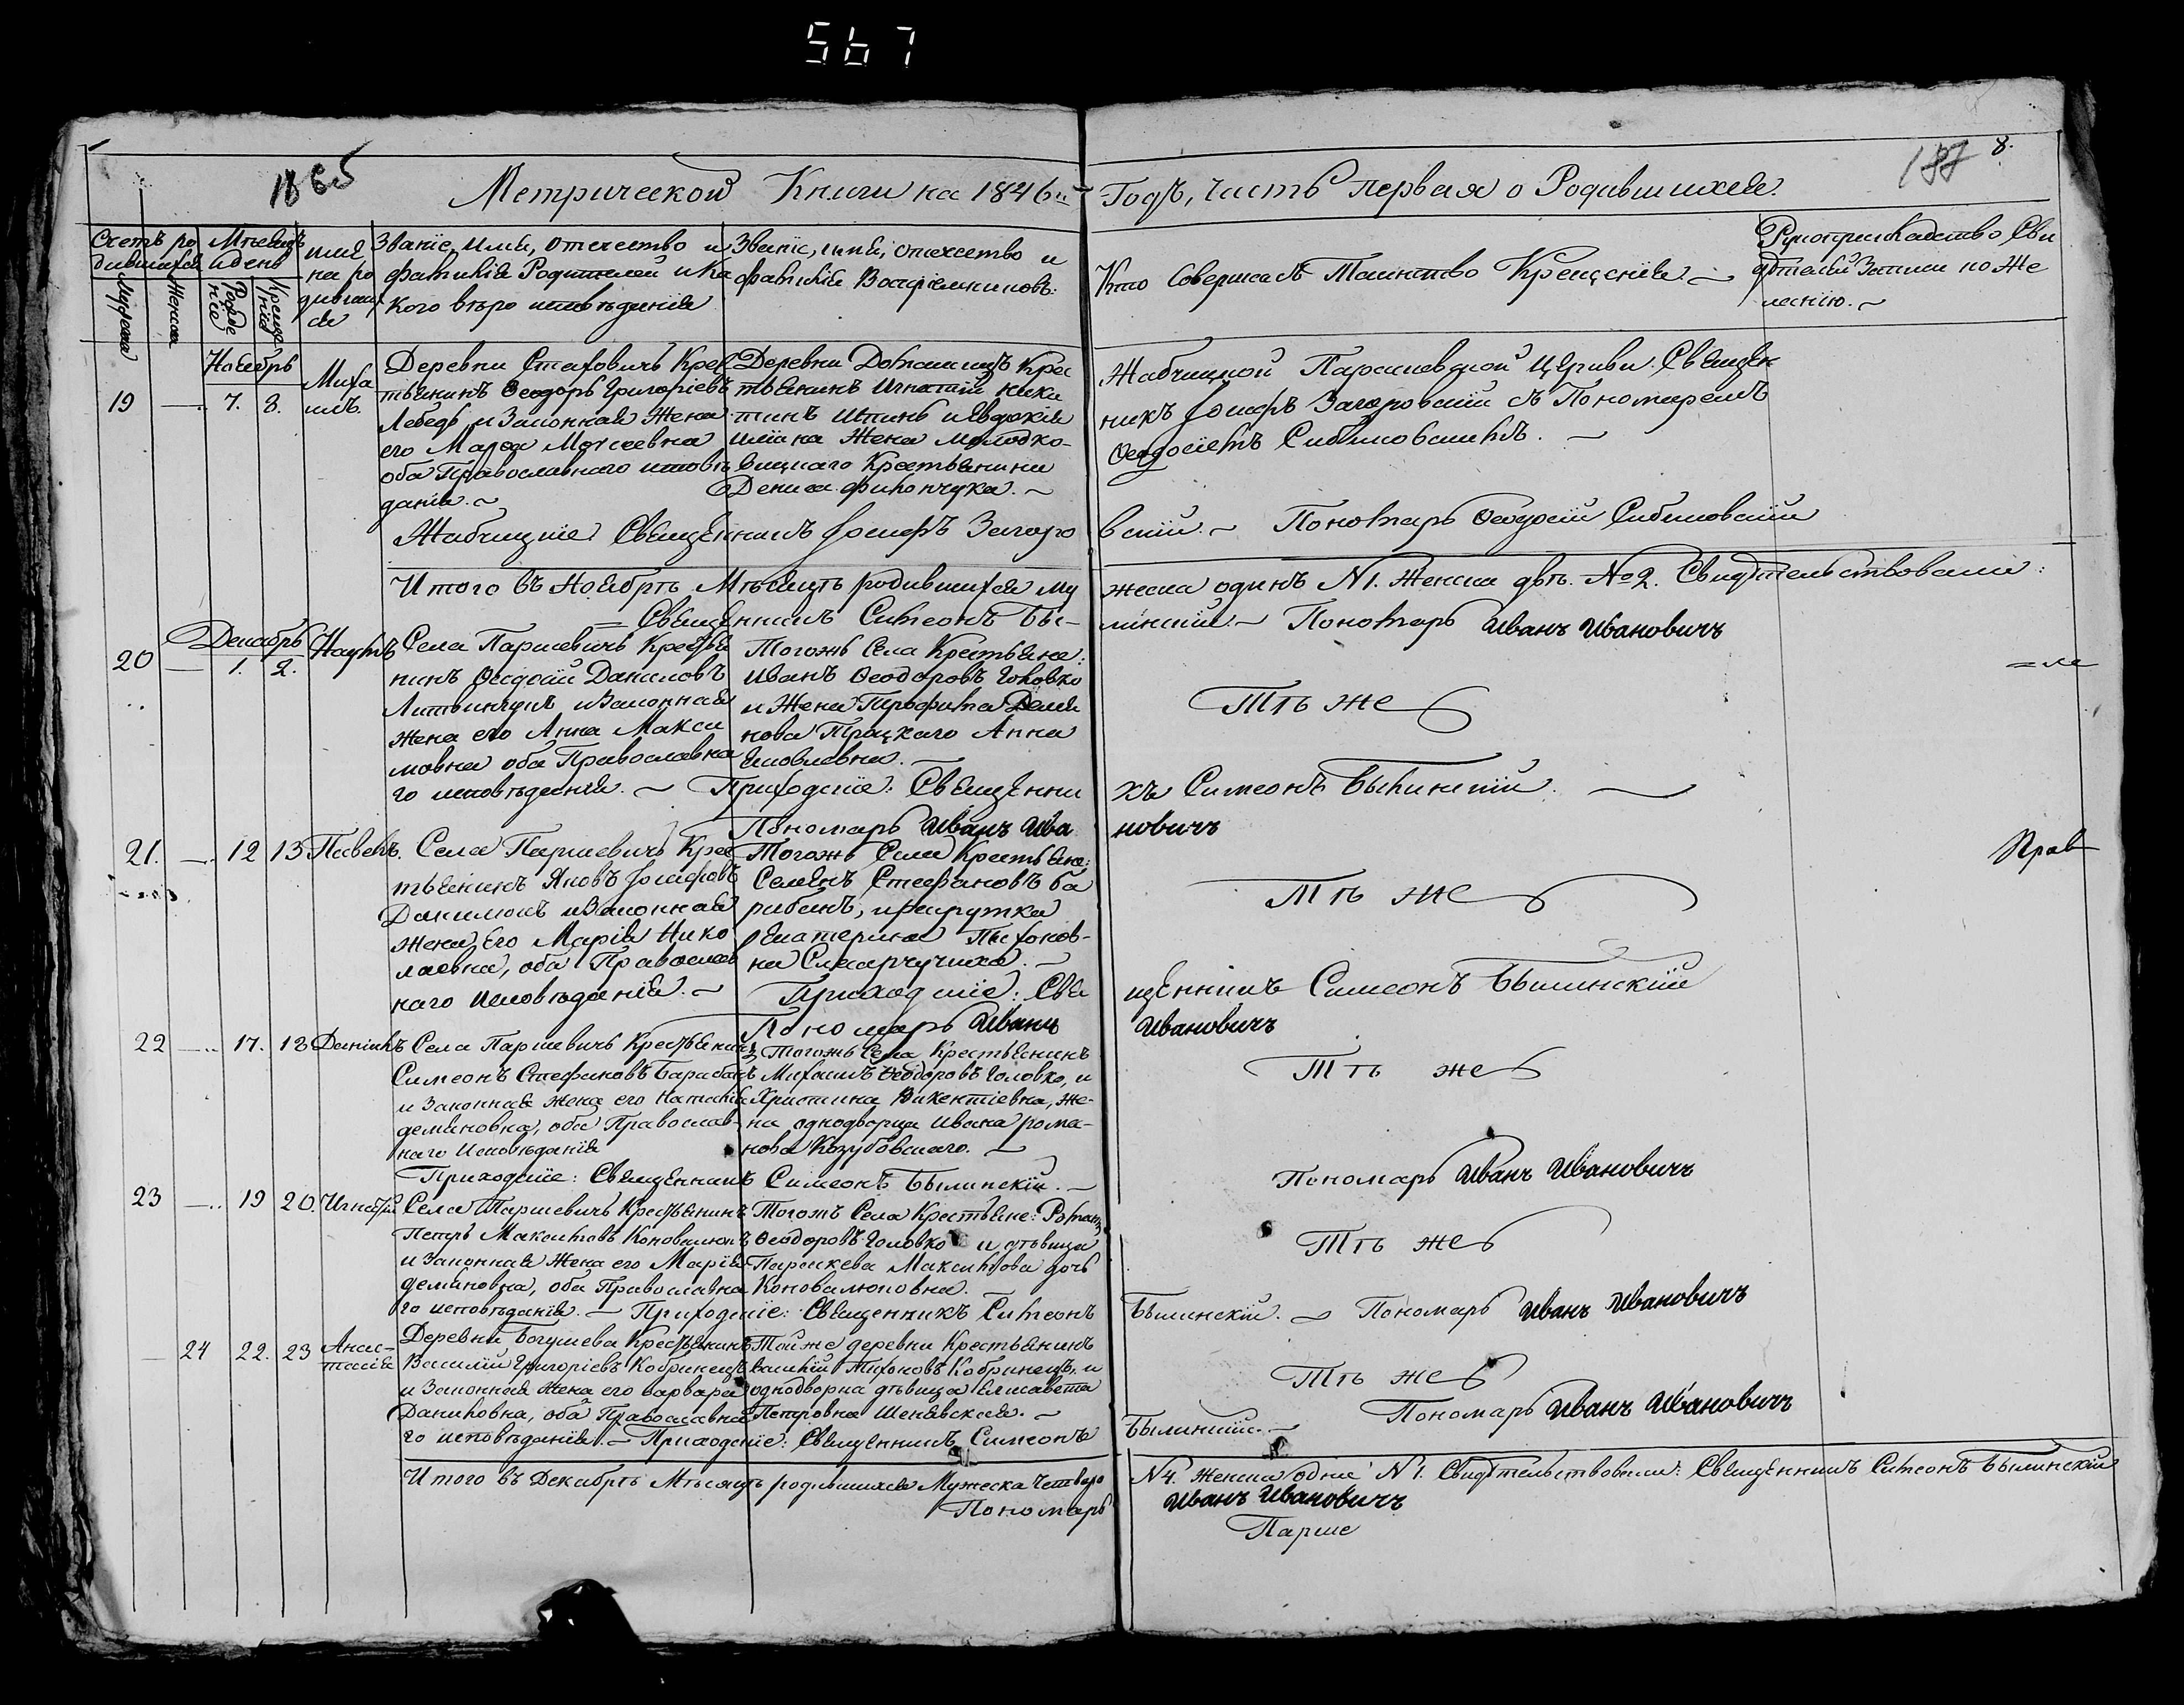 567
1865
187
8.
Метрической Книги на 1846й
Годъ, Часть первая о Родившихся.
Счетъ ро
дившихся
Мужеска
Женска
Мѣсяцъ
и день
Рожде
нія
Креще
нія
имя
на ро
дивших
ся
Званіе, имя, отечество и
фамилія Родителей и Ка
кого вѣро исповѣданія
Званіе, имя, отечество и
фамилія Воспріемниковъ.
Кто Совершалъ Таинство Крещенія
Рукоприкладство Сви
дѣтелей Записи по Же
ланію.
Ноябрь
19 — 7. 8.
Миха
илъ.
Деревни Стаховичъ Крес
тьянинъ Ѳеодоръ Григоріевъ
Лебедь, и Законная Жена
его Марѳа Моѵсеевна
оба Православнаго исповѣ
данія.
Деревни Крес
тьянинъ Игнатій Ники
тинъ и Евдокія
Жена Молодко-
вицкаго Крестьянина
Дениса
Жабчицкой Параскевской Церкви Священ
никъ Іосифъ Загоровскій съ Пономаремъ
Ѳеодосіемъ
Жабчицкіе Священникъ Іосифъ Загоро
вскій. Пономарь Ѳеодосій
Итого въ Ноябрѣ Мѣсяцѣ родившихся му
жеска одинъ N1. Женска двѣ. No2. Свидѣтельствовали:
Священникъ Симеонъ Бы-
линскій. Пономарь Иванъ Ивановичъ
Декабрь
20 — 1. 2.
Наумъ
Села Паршевичъ Крестья
нинъ Ѳеодосій Даниловъ
Литвинчукъ, и Законная
Жена его Анна Макси
мовна оба Православна
го исповѣданія.
Тогожъ Села Крестьяне:
Иванъ Ѳеодоровъ Головко
и Жена Трофима Демя
нова Троцкаго Анна
Яковлевна.
Тѣ же
=ле
Приходскіе: Священни
къ Симеонъ Былинскій.
Пономарь Иванъ Ива
новичъ
21. — 12 13 Павелъ.
Села Паршевичъ Крес
тьянинъ Яковъ Іосифовъ
Данилюкъ и Законная
Жена Его Марія Нико
лаевна, оба Православ
наго исповѣданія.
Тогожъ Села Крестьяне:
Семенъ Стефановъ Ба
рабанъ, и рекрутка
Екатерина Тихонов-
на
Тѣ же
Прав
Приходскіе: Свя
щенникъ Симеонъ Былинскій
Пономарь Иванъ
Ивановичъ
22 — 17. 18 Даніилъ
Села Паршевичъ Крестьянинъ
Симеонъ Стефановъ Барабанъ
и Законная Жена его Наталія
Демяновна, оба Православ-
наго Исповѣданія
Тогожъ Села Крестьянинъ
Михаилъ Ѳеодоровъ Головко, и
Христина Викентіевна, Же-
на однодворца Ивана Рома-
нова Козубовскаго.
Тѣ же
Приходскіе: Священникъ Симеонъ Былинскій.
Пономарь Иванъ Ивановичъ
23 — 19 20. Игнатій
Села Паршевичъ Крестьянинъ
Петръ Максимовъ Коновалюкъ
и Законная Жена его Марія
Демяновна, оба Православна
го исповѣданія.
Тогожъ Села Крестьяне: Романъ
Ѳеодоровъ Головко и дѣвица
Параскева Максимова дочь
Коновалюковна.
Тѣ же
Приходскіе: Священникъ Симеонъ
Былинскій. Пономарь Иванъ Ивановичъ
— 24 22. 23
Анас-
тасія
Деревни Богушева Крестьянинъ
Василій Григоріевъ Кобринецъ
и Законная Жена его Варвара
Даниловна, оба Православна
го исповѣданія.
Той же деревни Крестьянинъ
Василій Тихоновъ Кобринецъ, и
однодворка дѣвица Елисавета
Петровна Шенявская.
Тѣ же
Приходскіе: Священникъ Симеонъ
Былинскій.
Пономарь Иванъ Ивановичъ
Итого въ Декабрѣ Мѣсяцѣ родившихся Мужеска Четверо
N4. Женска одна N1. Свидѣтельствовали: Священникъ Симеонъ Былинскій
Пономарь
Иванъ Ивановичъ
Парше